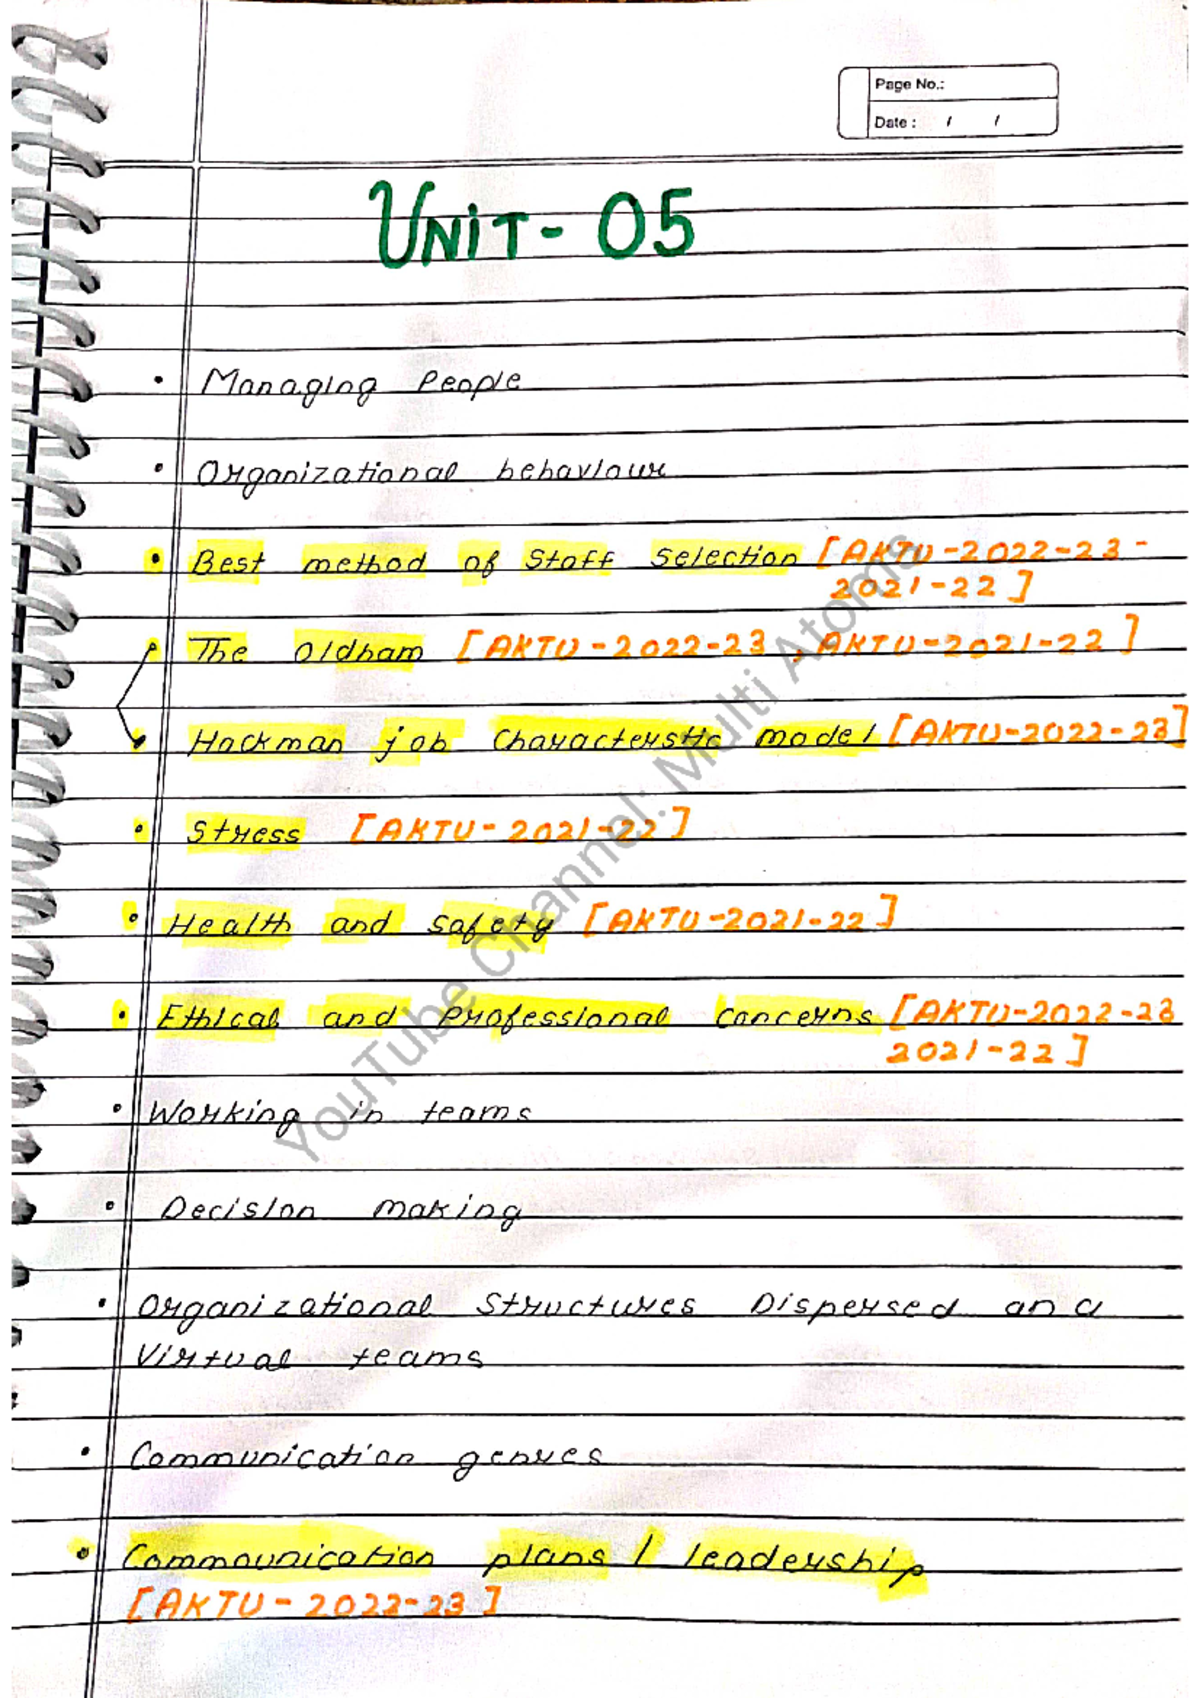 Page No.:
Date : / /
UNIT- 05
• Managing People
• Organizational behaviour
• Best method of Staff Selection [AKTU-2022-23-
2021-22]
• The Oldham [AKTU-2022-23, AKTU-2021-22]
• Hackman job Characterstic model [AKTU-2022-23]
• Stress [AKTU-2021-22]
• Health and safety [AKTU-2021-22]
• Ethical and professional concerns [AKTU-2022-23
2021-22]
• Working in teams
• Decision making
• Organizational Structures Dispersed and
Virtual teams
• Communication genres
• Communication plans / leadership
[AKTU-2022-23]
YouTube Channel: Multi Atoms